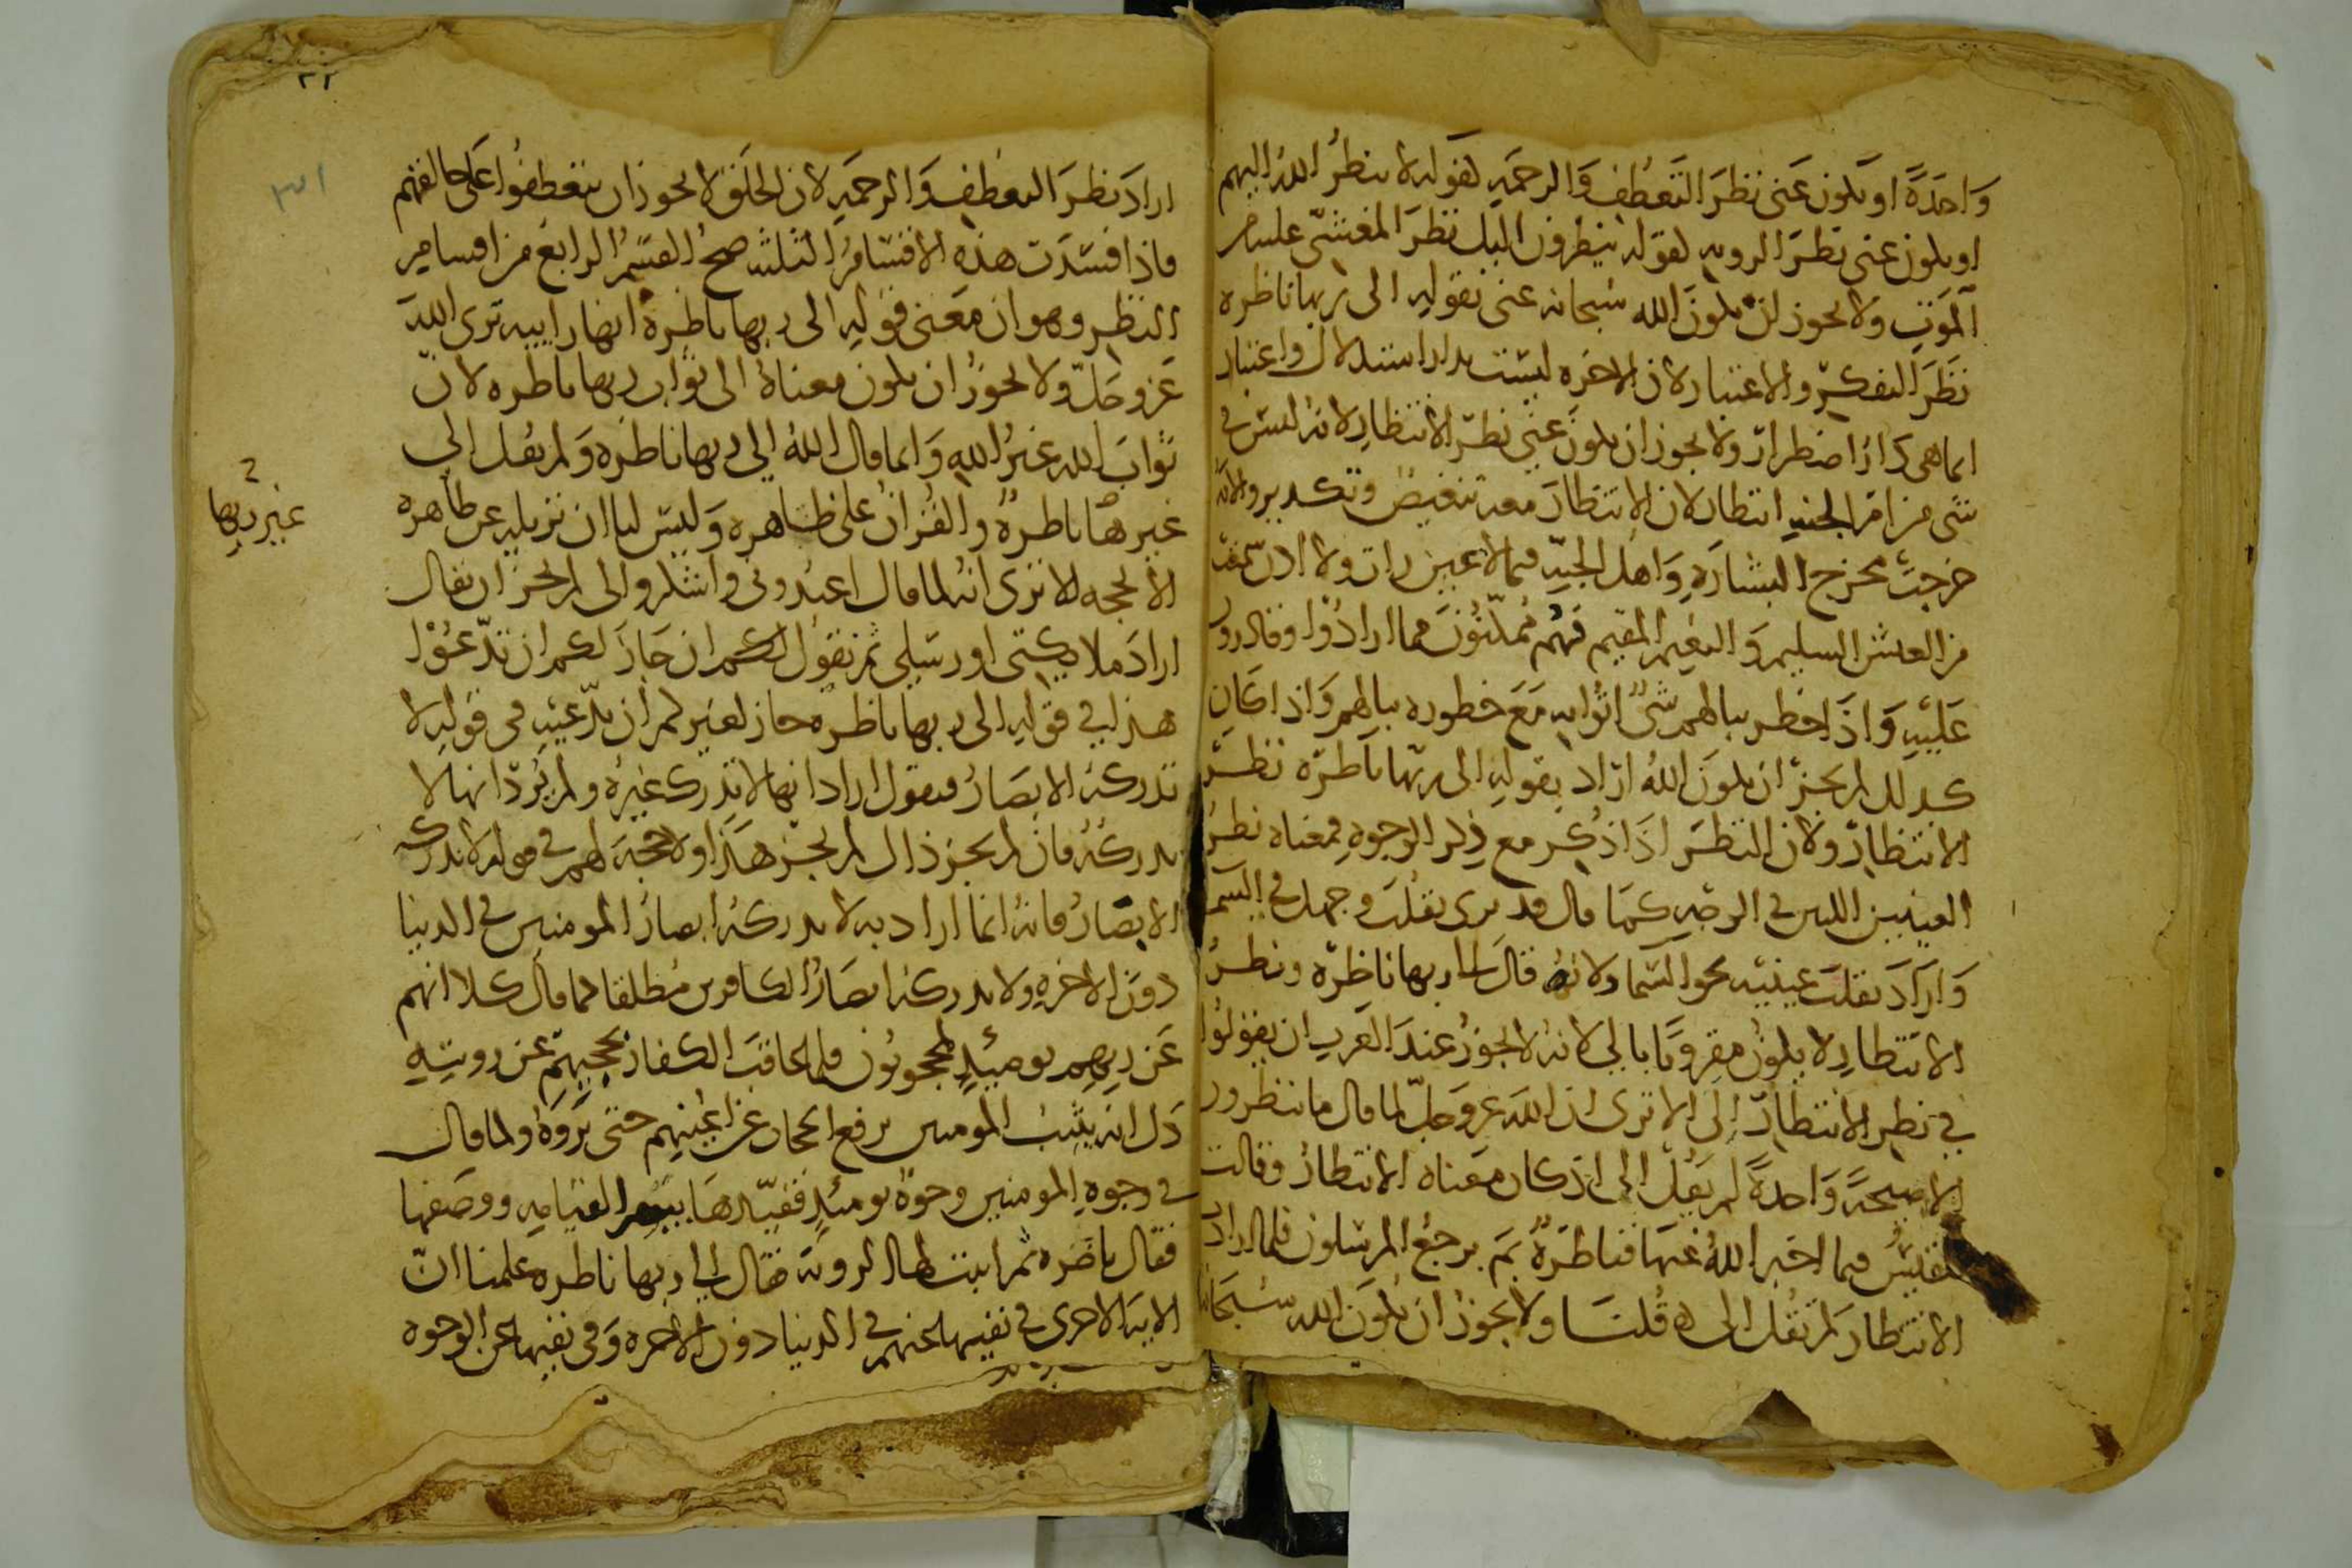 واحدة او يكون عنى نظر التعطف والرحمة لقوله لا ينظر الله اليهم
او يكون عنى نظر الروية لقوله ينظرون اليك نظر المغشي عليه من
الموت ولا يجوز ان يكون الله سبحانه عنى بقوله الى ربها ناظره
نظر التفكر والاعتبار لان الاخره ليست بدار استدلال واعتبار
انما هى دار اضطرار ولا يجوز ان يكون عنى نظر الانتظار لانه ليس في
شى من امر الجنه انتظار لان الانتظار معه تنغيص وتكدير والآية
خرجت مخرج البشارة واهل الجنة فيما لا عين رات ولا اذن سمعت
من العيش السليم والنعيم المقيم فهم ممكنون مما ارادوا وقادرون
عليه واذا خطر ببالهم شي اتوا به مع خطوره ببالهم واذا كان
كذلك لم يجز ان يكون الله اراد بقوله الى ربها ناظرة نظر
الانتظار ولان النظر اذا ذكر مع ذكر الوجوه فمعناه نظر
العينين اللتين في الوجه كما قال قد نرى تقلب وجهك في السما
واراد تقلب عينيه نحو السما ولانه قال الى ربها ناظرة ونظر
الانتظار لا يكون مقرونا بالى لانه لا يجوز عند العرب ان يقولوا
في نظر الانتظار الى الا ترى ان الله عز وجل لما قال ما ينظرون
الا صيحة واحدة لم يقل الى اذ كان معناه الانتظار وقالت
بلقيس فيما اخبر الله عنها فناظرة بم يرجع المرسلون فلما اراد
الانتظار لم تقل الى ه قلنا ولا يجوز ان يكون الله سبحانه
٣١
اراد نظر التعطف والرحمة لان الخلق لا يجوز ان يتعطفوا على خالقهم
فاذا فسدت هذه الاقسام الثلث صح القسم الرابع من اقسام
النظر وهو ان معنى قوله الى ربها ناظرة انها راييه ترى الله
عز وجل ولا يجوز ان يكون معناه الى ثواب ربها ناظره لان
ثواب الله غير الله وانما قال الله الى ربها ناظرة ولم يقل الى
غيرها ناظرة والقران على ظاهره وليس لنا ان نزيله عن ظاهره
غير ربها
الا لحجه الا ترى انه لما قال اعبدوني واشكروا لى لم يجز ان يقال
اراد ملايكتي او رسلي ثم نقول لكم ان جاز لكم ان تدعوا
هذا في قوله الى ربها ناظره جاز لغيركم ان يدعيه في قوله لا
تدركه الابصار فيقول اراد انها لا تدرك غيره ولم يرد انها لا
تدركه فان لم يجز ذاك لم يجز هذا ولا حجة لهم في قوله لا تدركه
الابصار فانه انما اراد به لا تدركه ابصار المومنين في الدنيا
دون الاخره ولا تدركه ابصار الكافرين مطلقا لما قال كلا انهم
عن ربهم يوميئذ لمحجوبون فلما عاقب الكفار بحجبهم عن رويته
دل انه يثيب المومنين برفع الحجاب عن اعينهم حتى يروه ولما قال
في وجوه المومنين وجوه يومئذ فقيدها بيوم القيامه ووصفها
فقال ناضره ثم اثبت لها الرويه فقال الى ربها ناظره علمنا ان
الاية الاخرى في نفيها عنهم في الدنيا دون الاخره وفي نفيها عن الوجوه